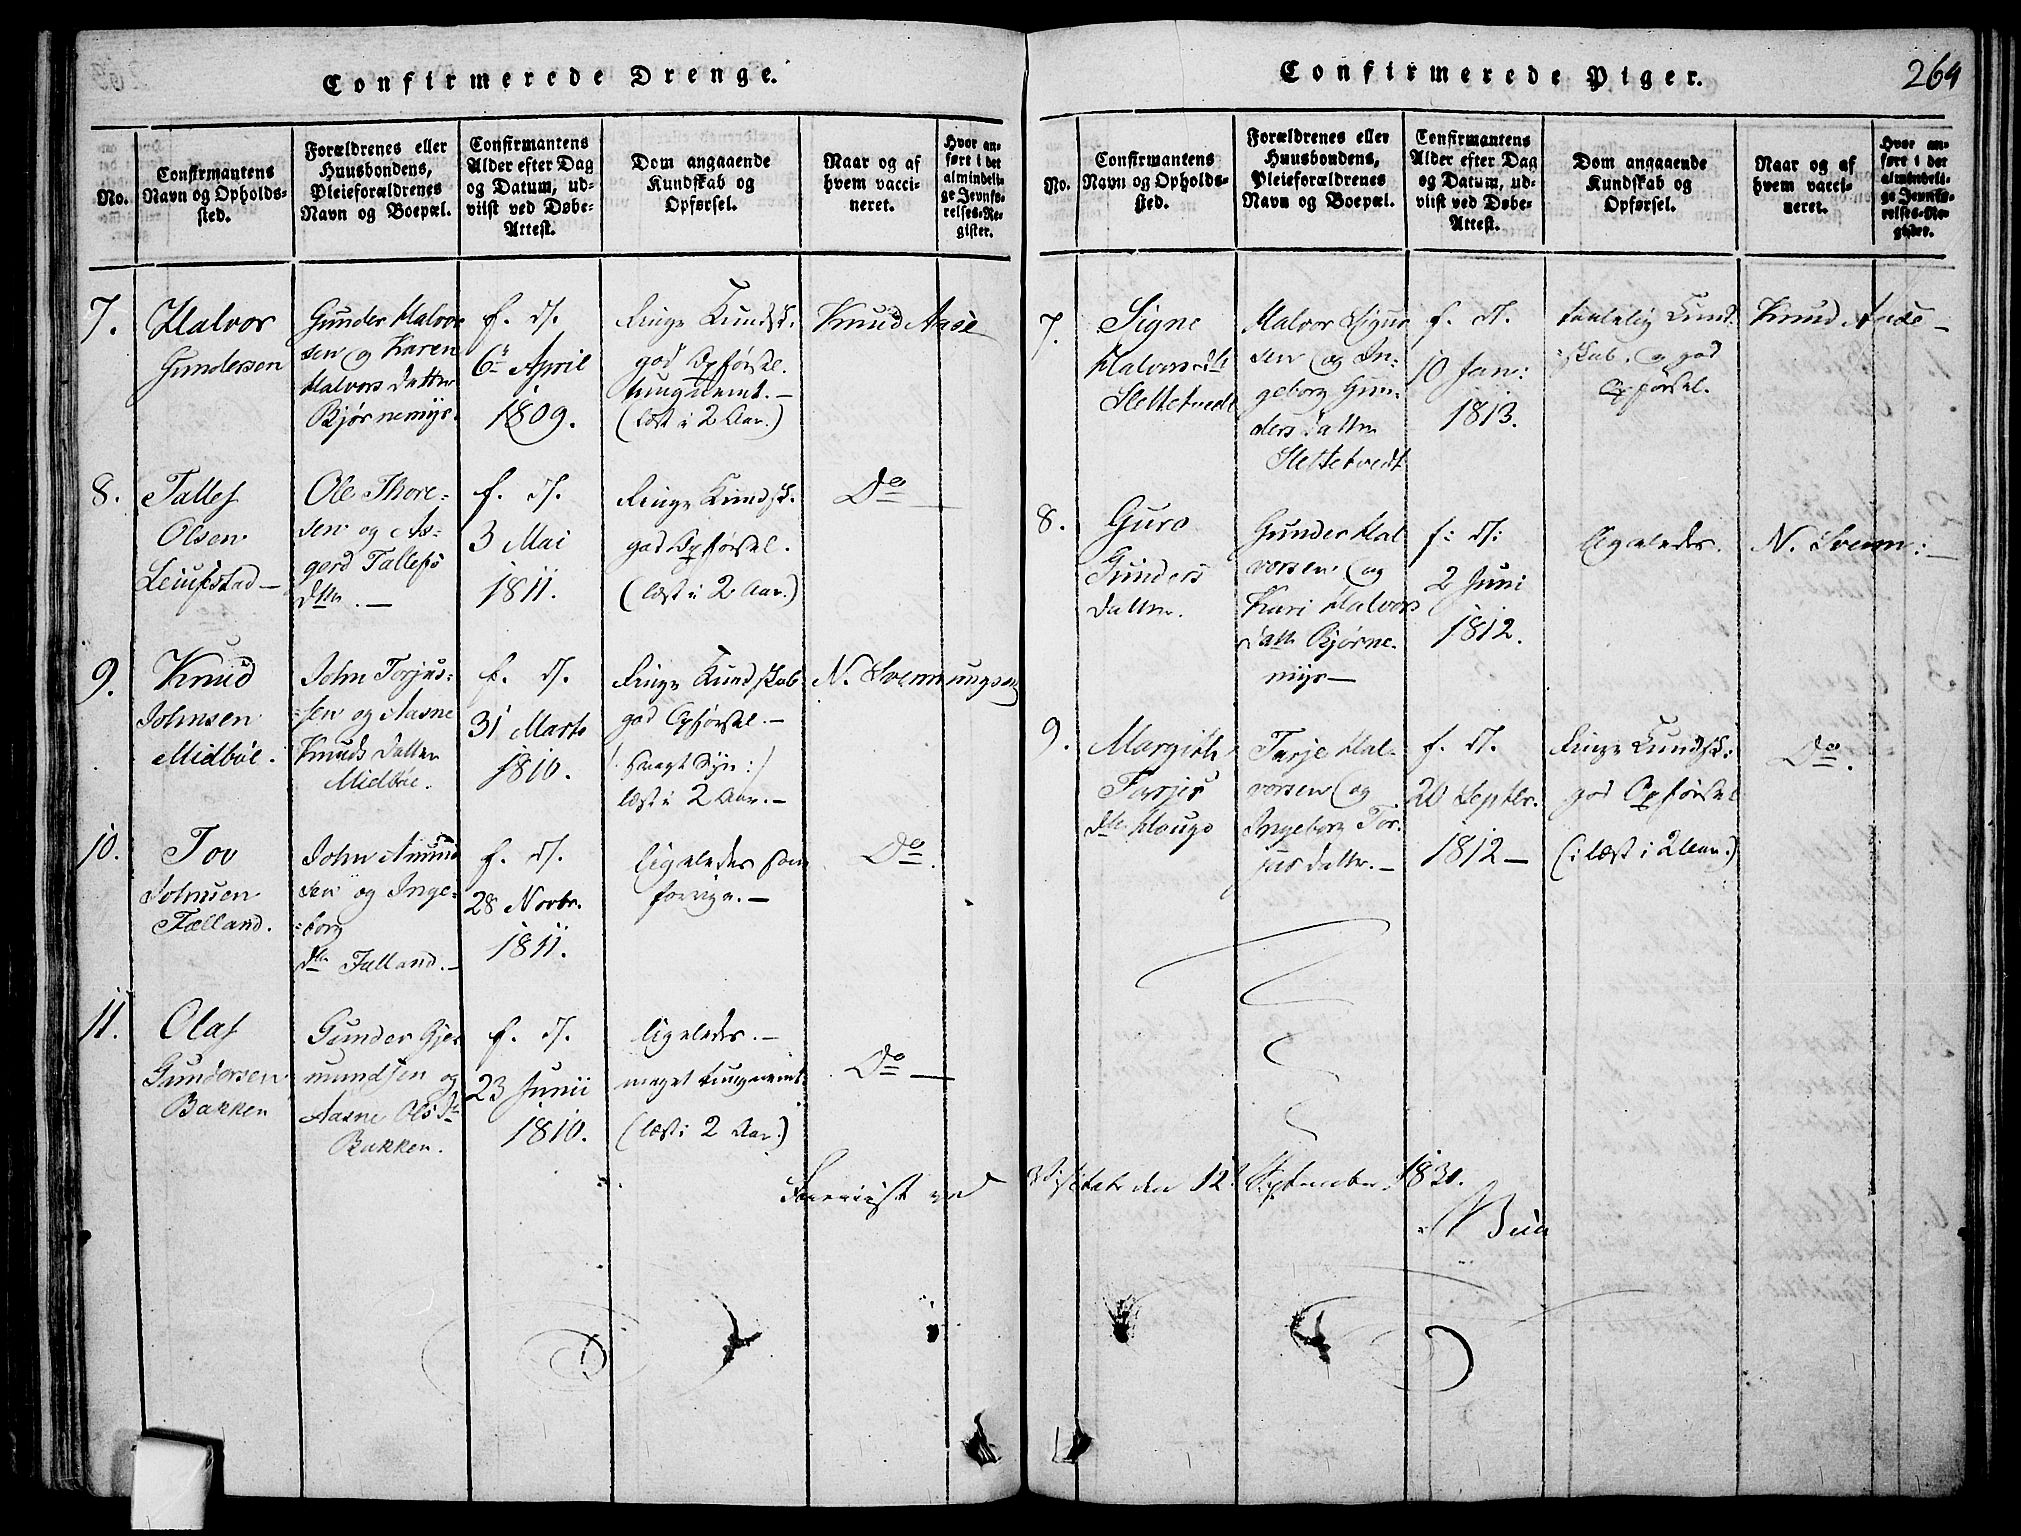 Confirmerede Drenge.
No.
Confirmantens
Navn og Opholds-
sted.
Forældrenes eller
Huusbondens,
Pleieforældrenes
Navn og Boepæl.
Confirmantens
Alder efter Dag
og Datum, ud-
viist ved Døbe-
Attest.
Dom angaaende
Kundskab og
Opførsel.
Naar og af
hvem vacci-
neret.
Hvor an-
ført i det
almindeli-
ge Jevnfø-
relses-Re-
gister.
7.
Halvor
Gundersen
Gunder Halvor
sen og Karen
Halvors datter
Bjørnemyr.
f. d.
6te April
1809.
Ringe Kundsk.
god Opførsel.
tungnemt. —
(læst i 2 Aar.)
Knud Aase
8.
Tallef
Olsen
Leiufstad —
Ole Thore-
sen og As-
gerd Tallefs
dttr. —
f. d.
3 Mai
1811.
Ringe Kundsk.
god Opførsel.
(læst i 2 Aar.)
Do —
9.
Knud
Johnsen
Midbøe.
John Torjus-
sen og Aasne
Knuds datter
Midbøe.
f. d.
31 Marts
1810.
Ringe Kundskab
god Opførsel. —
(svagt Syn:)
læst i 2 Aar. —
N. Svennungsen
10.
Tov
Johnsen
Fælland.
John Amund
sen og Inge-
borg
dtr Falland. —
f. d.
28 Novbr.
1811.
ligeledes som
forrige. —
Do.
11.
Olaf
Gundersen
Bakken
Gunder Gjer
mundsen og
Aasne Ols dtr
Bakken.
f. d.
23 Junii
1810.
ligeledes. —
meget tungnemt
(læst i 2 Aar.)
Do —
Confirmerede Piger.
264
No.
Confirmantens
Navn og Opholds-
sted.
Forældrenes eller
Huusbondens,
Pleieforældrenes
Navn og Boepæl.
Confirmantens
Alder efter Dag
og Datum, ud-
viist ved Døbe-
Attest.
Dom angaaende
Kundskab og
Opførsel.
Naar og af
hvem vacci-
neret.
Hvor an-
ført i det
almindeli-
ge Jevnfø-
relses-Re-
gister.
7.
Signe
Halvorsdtr
Slettetvedt
Halvor Sigur
sen og In-
geborg Gun-
ders datter
Slettetvedt
f. d.
10 Jan:
1813.
taalelig Kund-
skab, og god
Opførsel.
Knud Aase —
8.
Guro
Gunders
datter.
Gunder Hal
vorsen og
Kari Halvors
datr Bjørne-
myr —
f: d:
2 Juni
1812.
ligeledes.
N. Svenn: —
9.
Margith
Tarjes
dtr Hauge
Tarje Hal-
vorsen og
Ingeborg Tor-
jus dattr. —
f. d.
20 Septbr.
1812 —
Ringe Kundsk:
god Opførsel
(læst i 2 Aar.)
Do.
Foreviist ved Visitats den 12 September 1830.